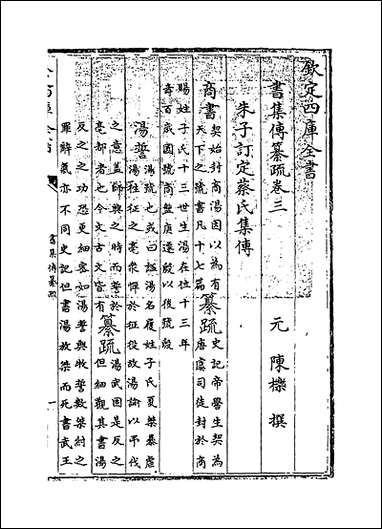 欽定四庫全書
書集傳纂疏卷三
元 陳櫟 撰
朱子訂定蔡氏集傳
商書
契始封商湯因以為有
天下之號書凡十七篇
纂疏
史記帝嚳生契為
唐虞司徒封於商
賜姓子氏十三世生湯在位十三年
壽百歲國號商盤庚遷殷以後號殷
湯誓
湯號也或曰諡湯名履姓子氏夏桀暴虐
湯往征之亳衆憚於征役故湯諭以弔伐
之意蓋師興之時而誓於
亳都者也今文古文皆有
纂疏
湯武固是反之
但細觀其書湯
反之之功恐更細密如湯誓與牧誓數桀紂之
罪辭氣亦不同史記但書湯放桀而死書武王
書集傳纂疏
一